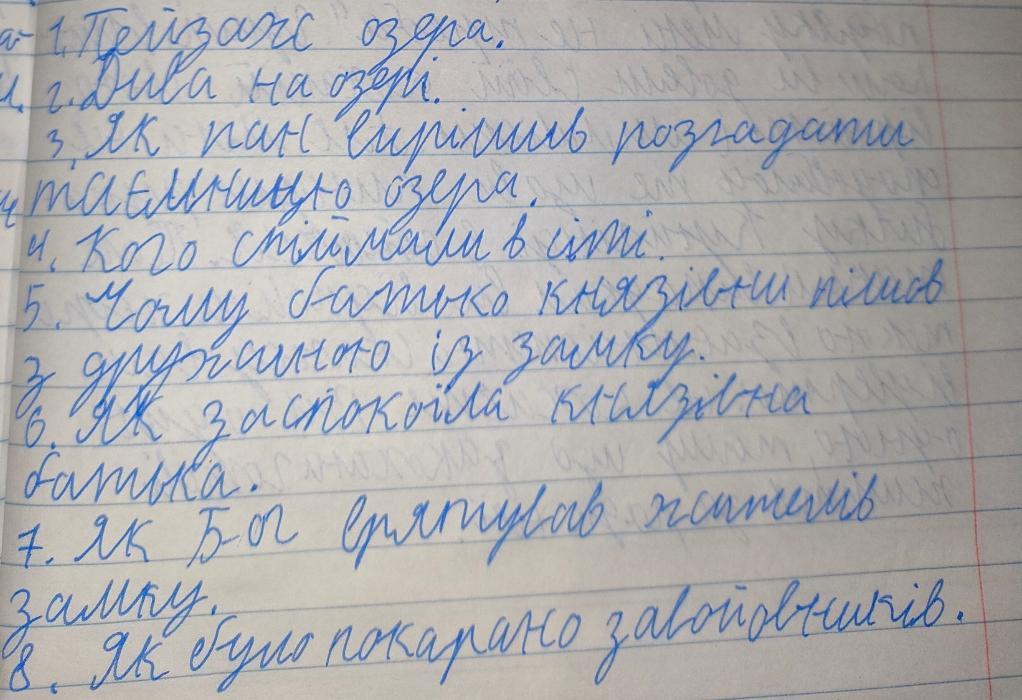 1. Пейзаж озера.
2. Дива на озері.
3. Як пан вирішив розгадати
таємницю озера.
4. Кого спіймали в сіті.
5. Чому батько князівни пішов
з дружиною із замку.
6. Як заспокоїла князівна
батька.
7. Як Бог врятував жителів
замку.
8. Як було покарано завойовників.